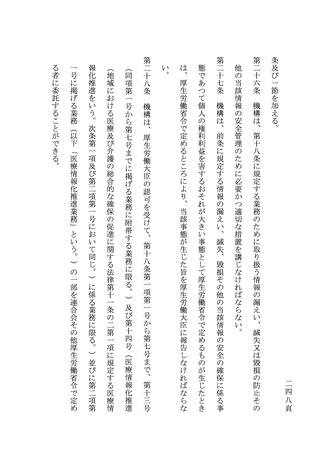 二四八頁
条及び一節を加える。
第二十六条　機構は、第十八条に規定する業務のために取り扱う情報の漏えい、滅失又は毀損の防止その
他の当該情報の安全管理のために必要かつ適切な措置を講じなければならない。
第二十七条　機構は、前条に規定する情報の漏えい、滅失、毀損その他の当該情報の安全の確保に係る事
態であつて個人の権利利益を害するおそれが大きい事態として厚生労働省令で定めるものが生じたとき
は、厚生労働省令で定めるところにより、当該事態が生じた旨を厚生労働大臣に報告しなければならな
い。
第二十八条　機構は、厚生労働大臣の認可を受けて、第十八条第一項第一号から第七号まで、第十三号
（同項第一号から第七号までに掲げる業務に附帯する業務に限る。）及び第十四号（医療情報化推進
（地域における医療及び介護の総合的な確保の促進に関する法律第十一条の二第一項に規定する医療情
報化推進をいう。次条第一項及び第二項第一号において同じ。）に係る業務に限る。）並びに第二項第
一号に掲げる業務（以下「医療情報化推進業務」という。）の一部を連合会その他厚生労働省令で定め
る者に委託することができる。